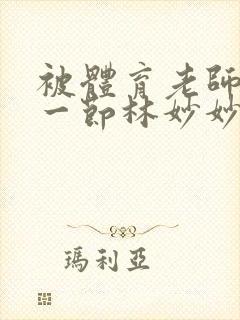 被體育老師
一節林妙妙
瑪利亞